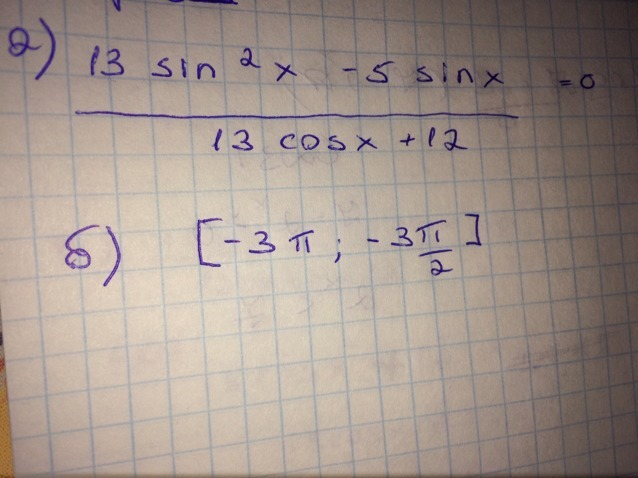 а) 13 sin²x - 5 sinx = 0
13 cosx + 12
б) [-3π ; -3π/2]